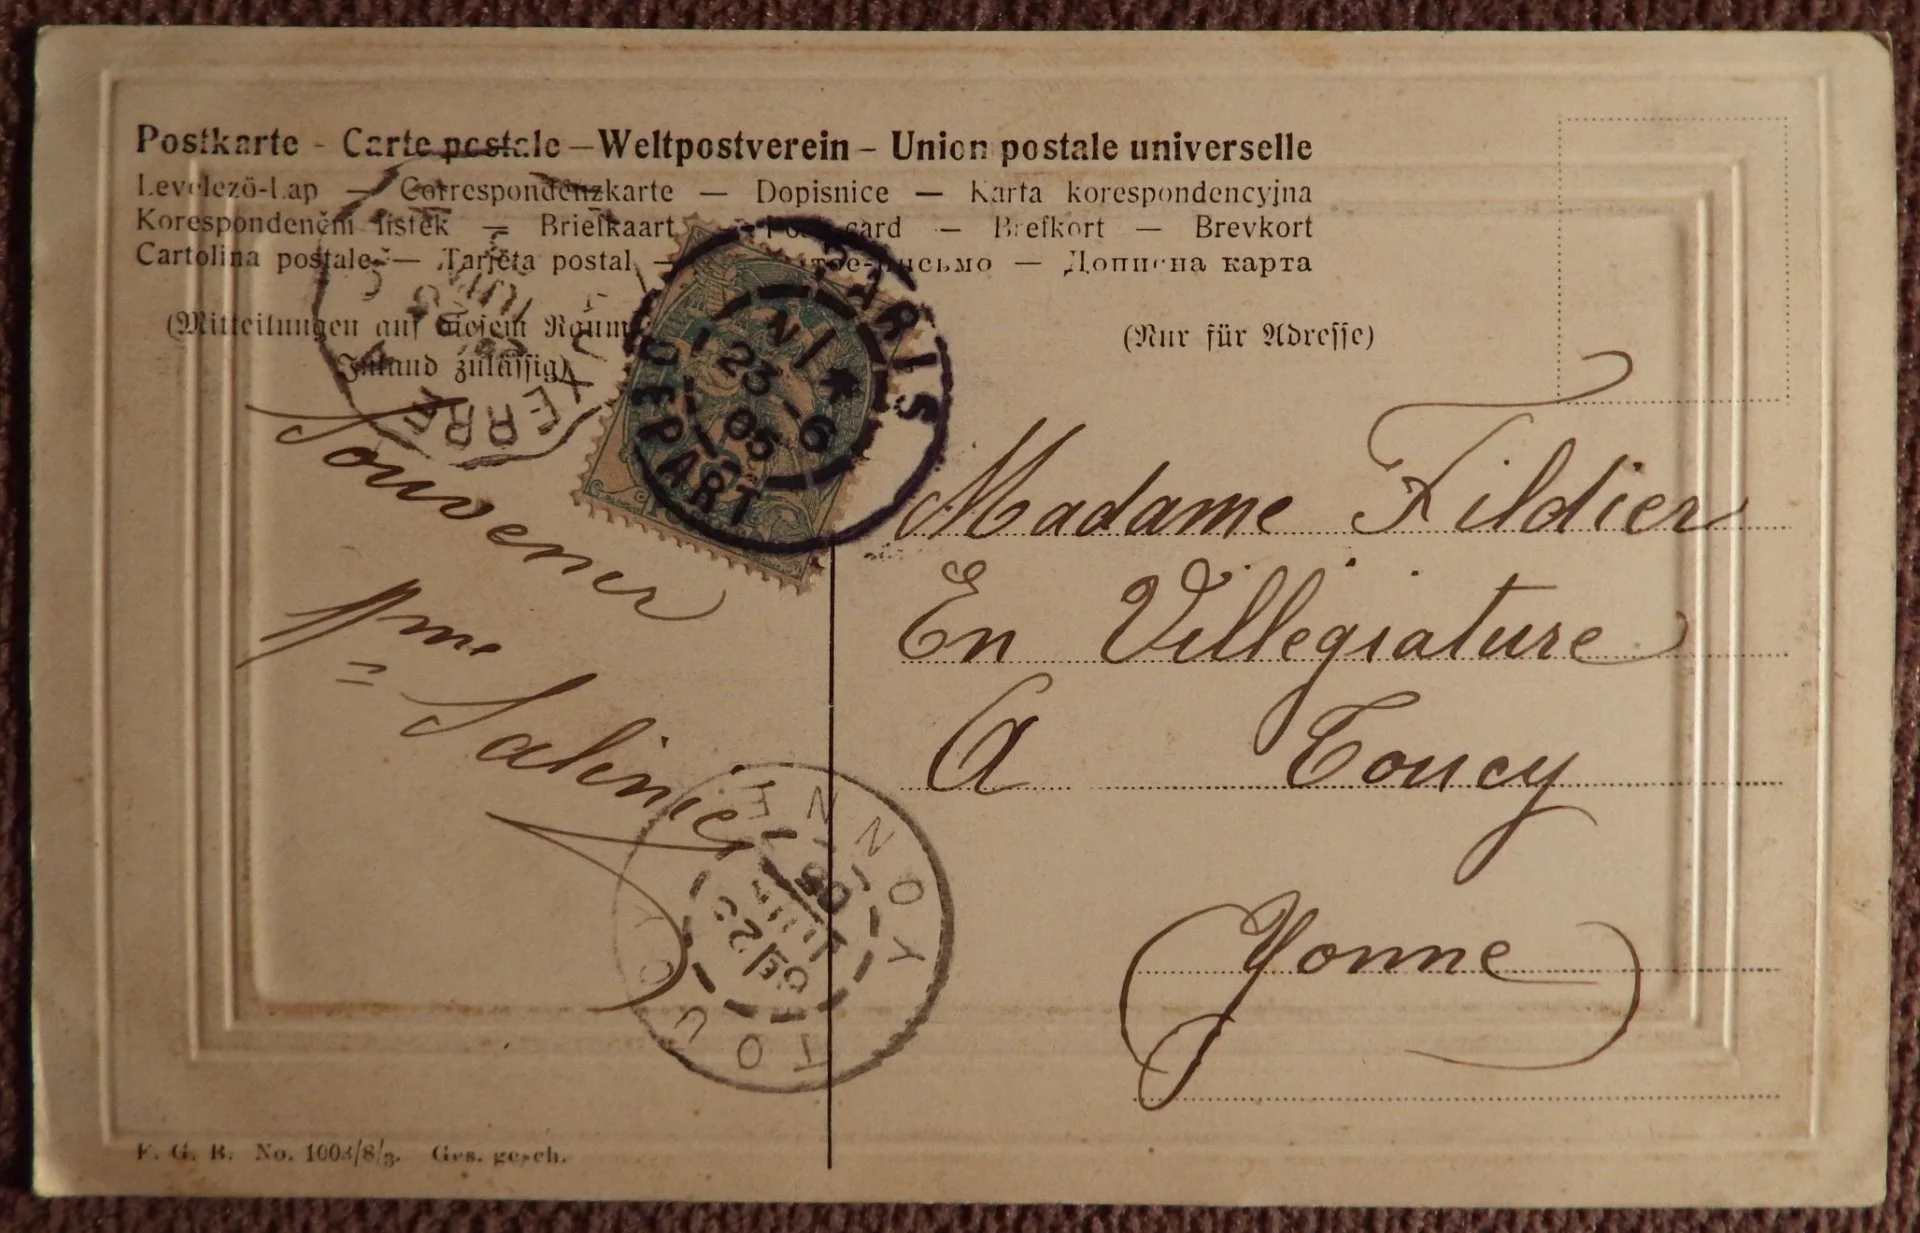 Postkarte - Carte postale – Weltpostverein – Union postale universelle
Levelező-Lap — Correspondenzkarte — Dopisnice — Karta korespondencyjna
Korespondenční lístek — Briefkaart — Post card — Brefkort — Brevkort
Cartolina postale — Tarjeta postal — письмо — Дописна карта
(Mitteilungen auf diesem Raum
Inland zulässig)
(Nur für Adresse)
PARIS
DEPART
23 - 6
05
XERRE
Souvenir
Mme Salinié
Madame Fildier
En Villegiature
A Toucy
Yonne
TOUCY
YONNE
6E 23
JUIN
05
F. G. B. No. 1003/8/3. Ges. gesch.